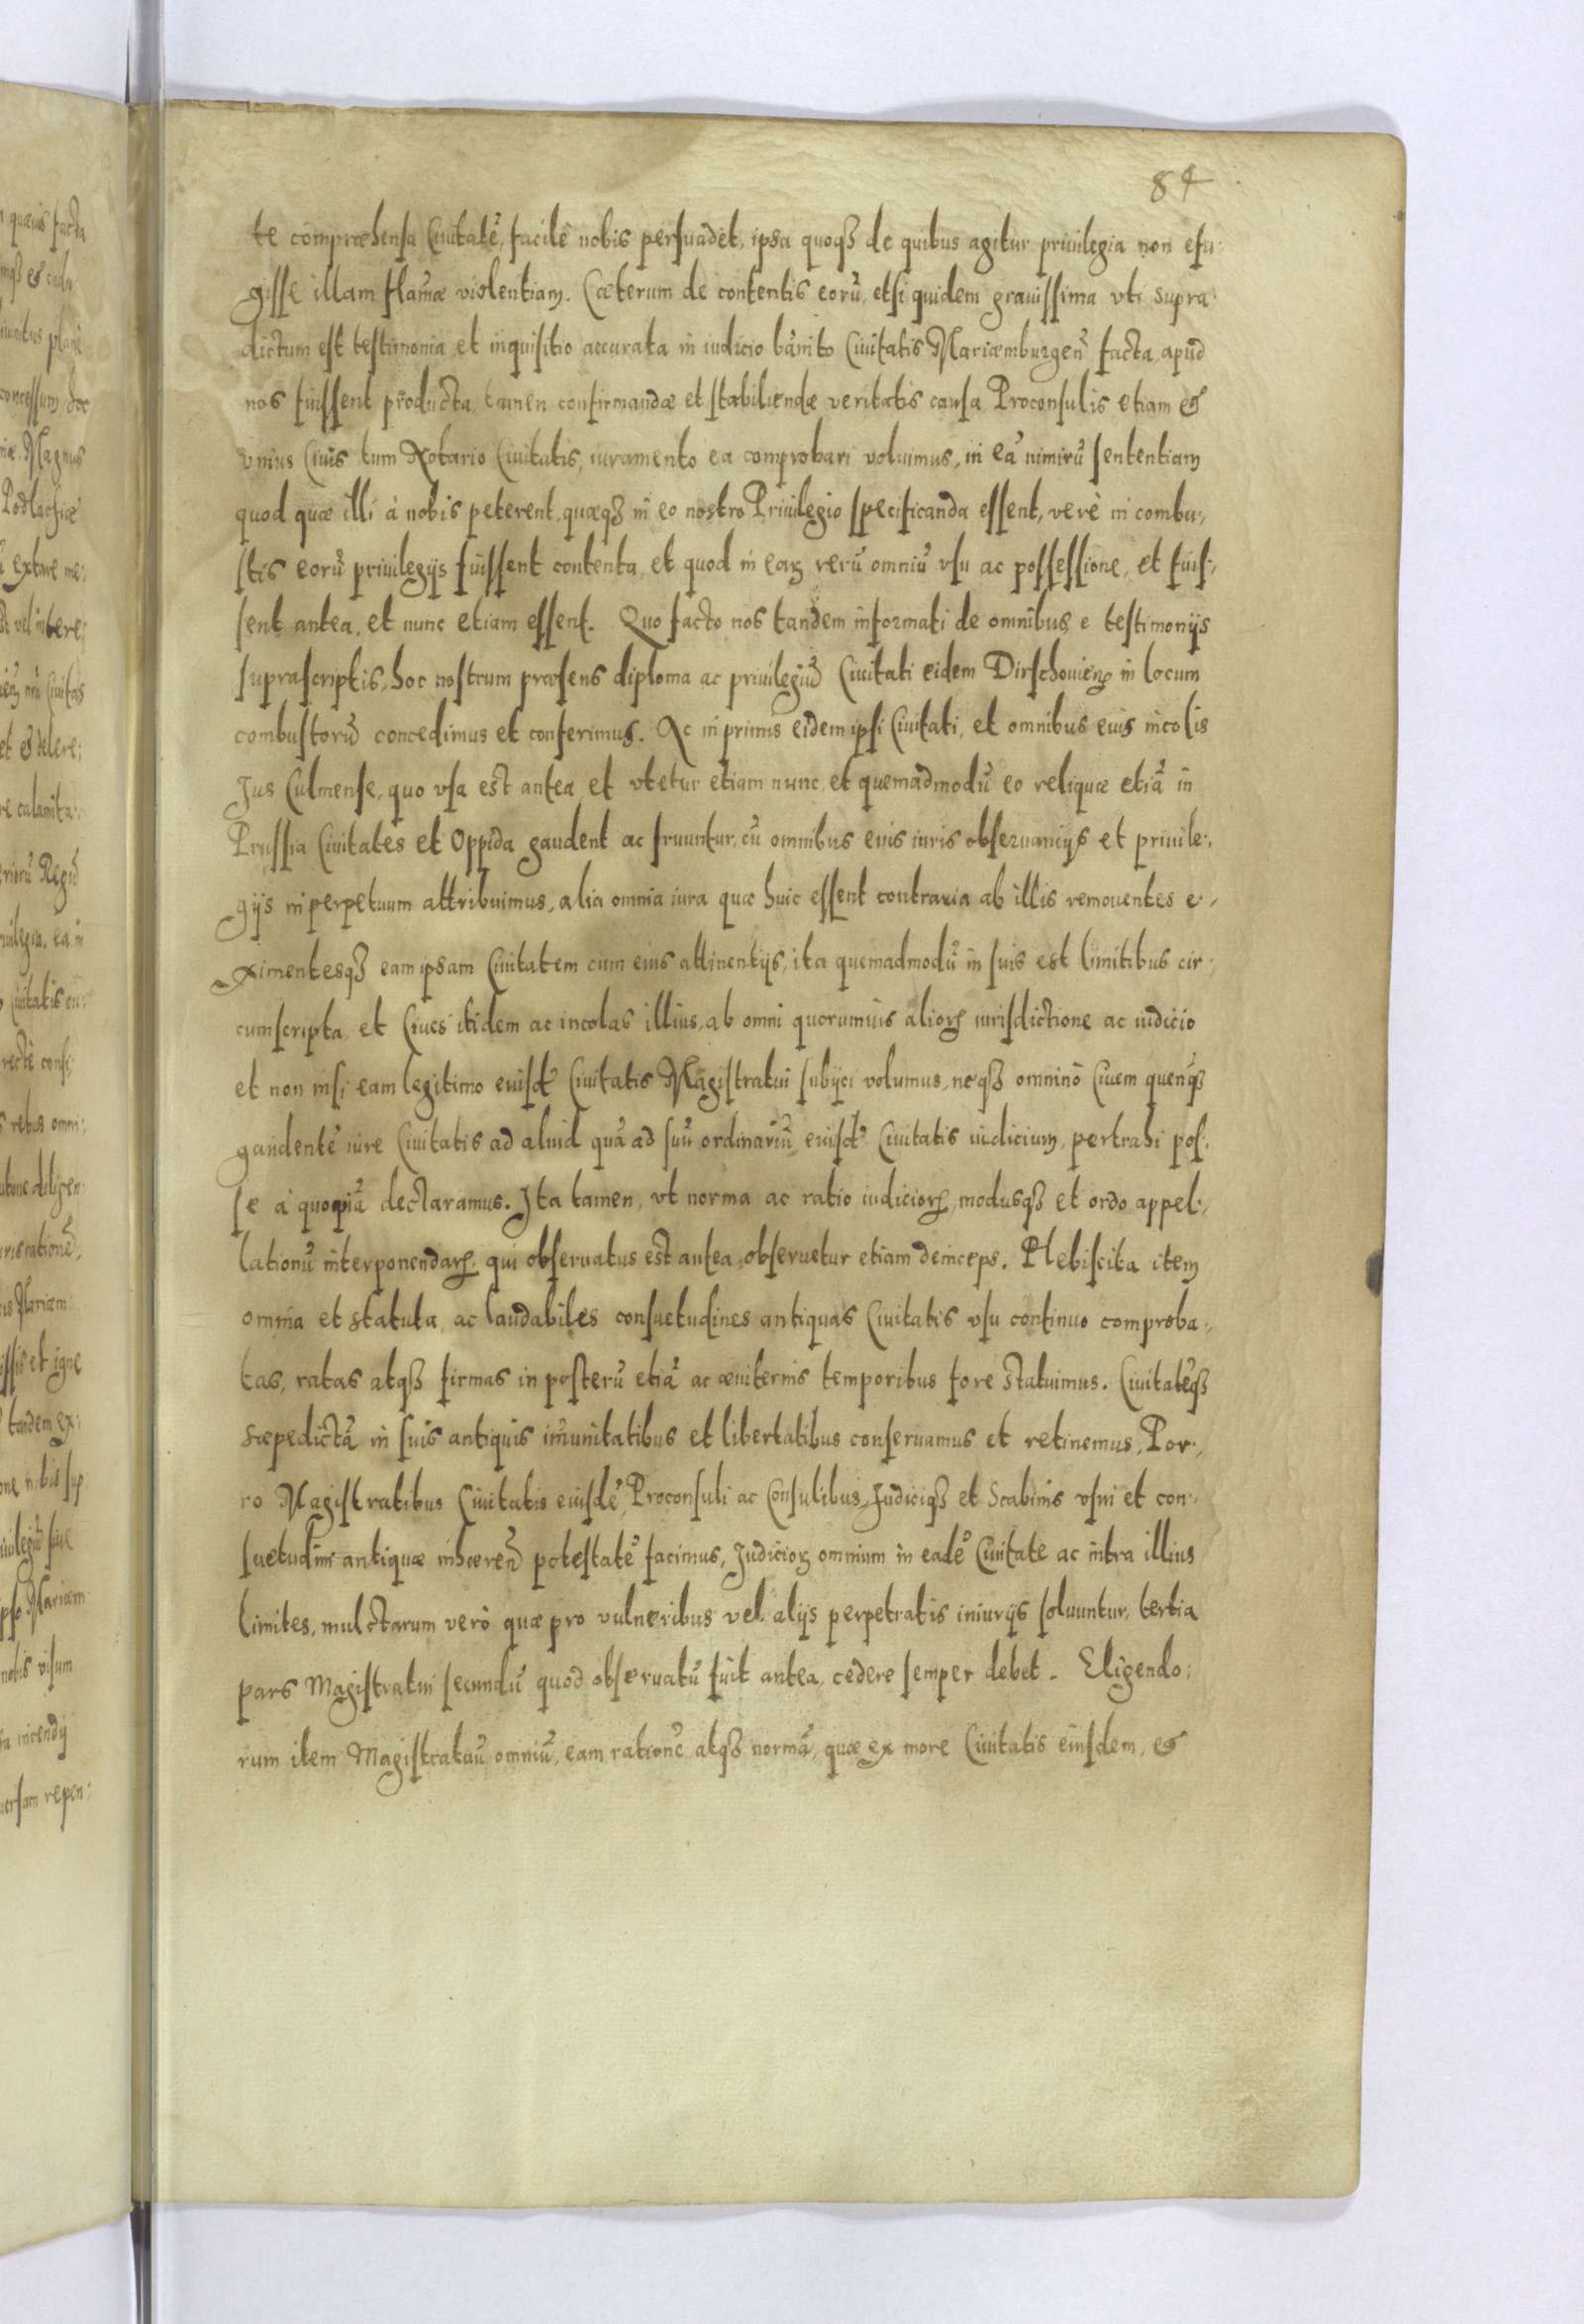 84
te compræhensa Ciuitatẽ, facilè nobis persuadet, ipsa quoqꝫ de quibus agitur priuilegia non efu-
gisse illam flam̃æ violentiam. Cæterum de contentis eorũ, etsi quidem grauissima vti supra
dictum est testimonia et inquisitio accurata in iudicio bãnito Ciuitatis Mariæmburgeñ facta, apud
nos fuissent producta, tamen confirmandæ et stabiliendæ veritatis causa Proconsulis etiam &
vnius Ciuis tum Notario Ciuitatis, iuramento ea comprobari voluimus, in eã nimirũ sententiam
quod quæ illi à nobis peterent, quæqꝫ in eo nostro Priuilegio specificanda essent, verè in combu-
stis eorũ priuilegijs fuissent contenta, et quod in eaꝝ rerũ omniũ vsu ac possessione, et fuis-
sent antea, et nunc etiam essent. Quo facto nos tandem informati de omnibus e testimonijs
suprascriptis, hoc nostrum præsens diploma ac priuilegiũ Ciuitati eidem Dirschouieñ in locum
combustorũ concedimus et conferimus. Ac in primis eidem ipsi Ciuitati, et omnibus eius incolis
Jus Culmense, quo vsa est antea et vtetur etiam nunc, et quemadmodũ eo reliquæ etiã in
Prussia Ciuitates et Oppida gaudent ac fruuntur, cũ omnibus eius iuris obseruancijs et priuile-
gijs in perpetuum attribuimus, alia omnia iura quæ huic essent contraria ab illis remouentes e-
ximentesqꝫ eam ipsam Ciuitatem cum eius attinentijs, ita quemadmodũ in suis est limitibus cir-
cumscripta, et Ciues itidem ac incolas illius, ab omni quorumuis alioꝝ iurisdictione ac iudicio
et non nisi eam legitimo euisdẽ Ciuitatis Magistratui subijci volumus, neqꝫ omninò Ciuem quenqꝫ
gaudentẽ iure Ciuitatis ad aliud quã ad suũ ordinariũ, eiusdẽ Ciuitatis iudicium, pertrahi pos-
se à quopiã declaramus. Ita tamen, vt norma ac ratio iudicioꝝ, modusqꝫ et ordo appel-
lationũ interponendaꝝ, qui obseruatus est antea, obseruetur etiam deinceps. Plebiscita item
omnia et statuta, ac laudabiles consuetudines antiquas Ciuitatis vsu continuo comproba-
tas, ratas atqꝫ firmas in posterũ etiã ac æuiternis temporibus fore statuimus. Ciuitatẽqꝫ
sæpedictã in suis antiquis im̃unitatibus et libertatibus conseruamus et retinemus, Por-
ro Magistratibus Ciuitatis eiusdẽ, Proconsuli ac Consulibus, Judiciqꝫ et Scabinis vsui et con-
suetudini antiquæ inhæreñ potestatẽ facimus, Judicioꝝ omnium in eadẽ Ciuitate ac intra illius
limites, mulctarum verò quæ pro vulneribus vel alijs perpetratis iniurijs soluuntur, tertia
pars Magistratui secundũ quod obseruatũ fuit antea, cedere semper debet. Eligendo-
rum item Magistratuũ omniũ, eam rationẽ atqꝫ normã, quæ ex more Ciuitatis eiusdem, &